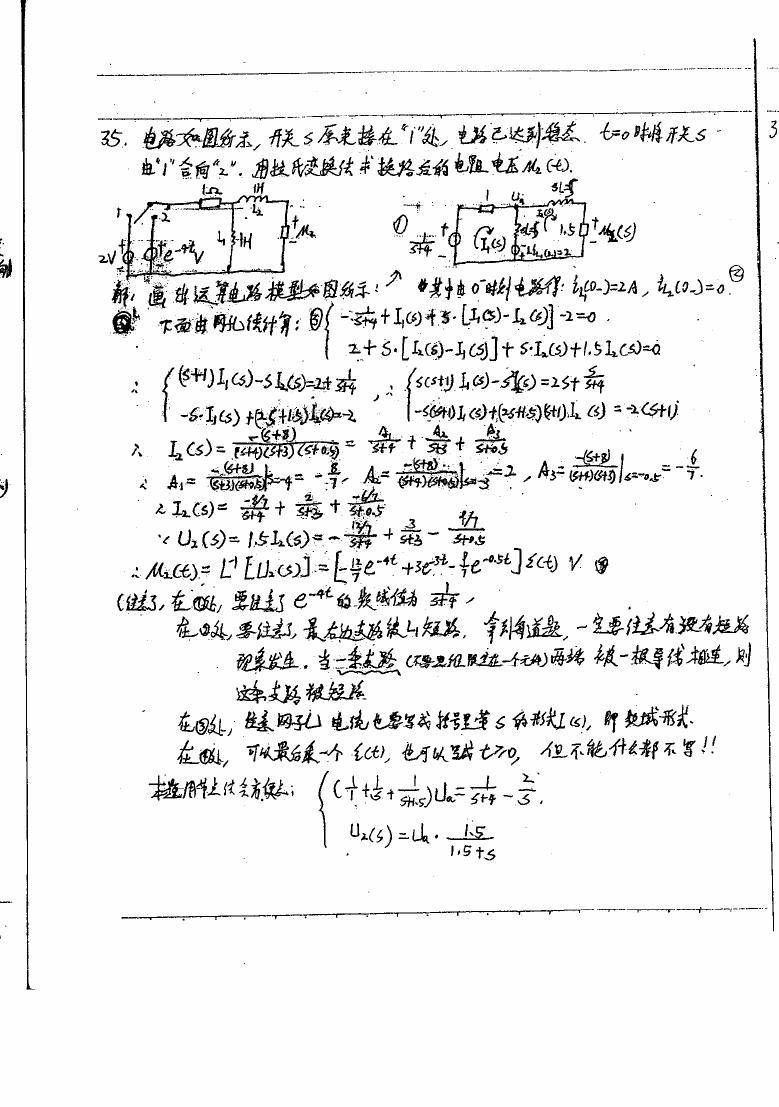 35. 电路如图所示, 开关 S 原来接在 "1" 处, 电路已达到稳态. t=0 时将开关 S
由 "1" 合向 "2". 用拉氏变换法求换路后的电阻电压 u₂(t).
1Ω 1H
1 2 i₂
2V e^{-4t}V i₁ 1H u₂
① 1/(s+4) 1 Uₐ sL=s I₁(s) I₂(s) sL=s 1.5 U₂(s)
解: 画出运算电路模型如图所示: ↗ 其中由 0⁻ 时刻电路得: i₁(0₋)=2A, i₂(0₋)=0 ②
下面由网孔法计算: ③ { -1/(s+4) + I₁(s) + s·[I₁(s)-I₂(s)] -2=0.
2+s·[I₂(s)-I₁(s)]+s·I₂(s)+1.5I₂(s)=0
∴ { (s+1)I₁(s)-sI₂(s)=2+1/(s+4) , ∴ { s(s+1)I₁(s)-s²I₂(s)=2s+s/(s+4)
-s·I₁(s)+(2s+1.5)I₂(s)=-2 -s(s+1)I₁(s)+(2s+1.5)(s+1)I₂(s)=-2(s+1)
∴ I₂(s)= -(s+8)/((s+4)(s+3)(s+0.5)) = A₁/(s+4) + A₂/(s+3) + A₃/(s+0.5)
∴ A₁= -(s+8)/((s+3)(s+0.5))|s=-4 = -8/7, A₂= -(s+8)/((s+4)(s+0.5))|s=-3 =2, A₃= -(s+8)/((s+4)(s+3))|s=-0.5 = -6/7.
∴ I₂(s)= (-8/7)/(s+4) + 2/(s+3) + (-6/7)/(s+0.5)
∵ U₂(s)=1.5I₂(s)= -(12/7)/(s+4) + 3/(s+3) - (9/7)/(s+0.5)
∴ u₂(t)=L⁻¹[U₂(s)]=[-12/7 e^{-4t}+3e^{-3t}-9/7 e^{-0.5t}]ε(t) V ④
(注意, 在①处, 要注意 e^{-4t} 的复域值为 1/(s+4),
在②处, 要注意, 最右边支路被 L₁ 短路. 拿到每道题, 一定要注意有没有短路
现象发生. 当一条支路 (不要局限在一个元件) 两端被一根导线相连, 则
这条支路被短路
在③处, 注意网孔电流也要写成括号里带 s 的形式 I(s), 即复域形式.
在④处, 可以最后乘一个 ε(t), 也可以写成 t≥0, 但不能什么都不写!!
本题用节点法会方便些: { (1/1+1/s+1/(s+1.5))Uₐ=1/(s+4)-2/s.
U₂(s)=Uₐ·1.5/(1.5+s)